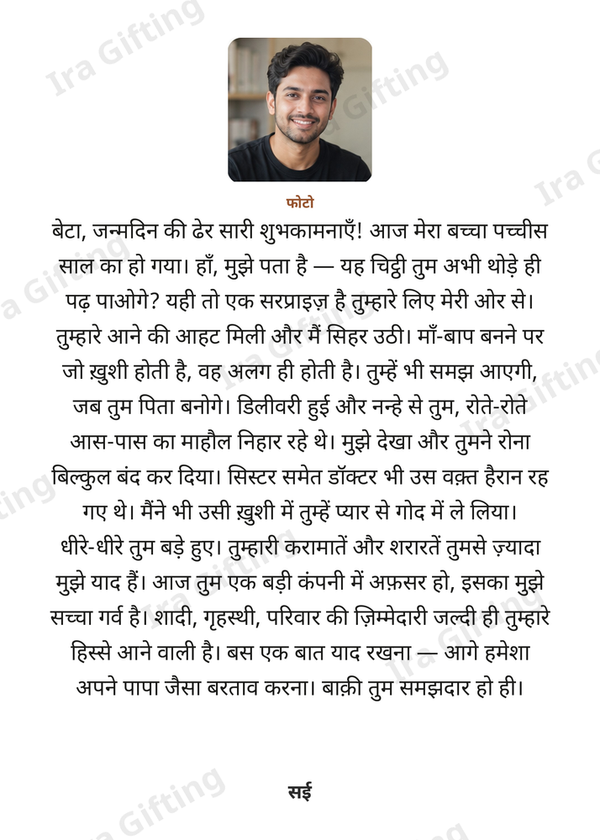 फोटो
बेटा, जन्मदिन की ढेर सारी शुभकामनाएँ! आज मेरा बच्चा पच्चीस
साल का हो गया। हाँ, मुझे पता है — यह चिट्ठी तुम अभी थोड़े ही
पढ़ पाओगे? यही तो एक सरप्राइज़ है तुम्हारे लिए मेरी ओर से।
तुम्हारे आने की आहट मिली और मैं सिहर उठी। माँ-बाप बनने पर
जो ख़ुशी होती है, वह अलग ही होती है। तुम्हें भी समझ आएगी,
जब तुम पिता बनोगे। डिलीवरी हुई और नन्हे से तुम, रोते-रोते
आस-पास का माहौल निहार रहे थे। मुझे देखा और तुमने रोना
बिल्कुल बंद कर दिया। सिस्टर समेत डॉक्टर भी उस वक़्त हैरान रह
गए थे। मैंने भी उसी ख़ुशी में तुम्हें प्यार से गोद में ले लिया।
धीरे-धीरे तुम बड़े हुए। तुम्हारी करामातें और शरारतें तुमसे ज़्यादा
मुझे याद हैं। आज तुम एक बड़ी कंपनी में अफ़सर हो, इसका मुझे
सच्चा गर्व है। शादी, गृहस्थी, परिवार की ज़िम्मेदारी जल्दी ही तुम्हारे
हिस्से आने वाली है। बस एक बात याद रखना — आगे हमेशा
अपने पापा जैसा बरताव करना। बाक़ी तुम समझदार हो ही।
सई
Ira Gifting
Ira Gifting
Ira Gifting
Ira Gifting
Ira Gifting
Ira Gifting
Ira Gifting
Ira Gifting
Ira Gifting
Ira Gifting